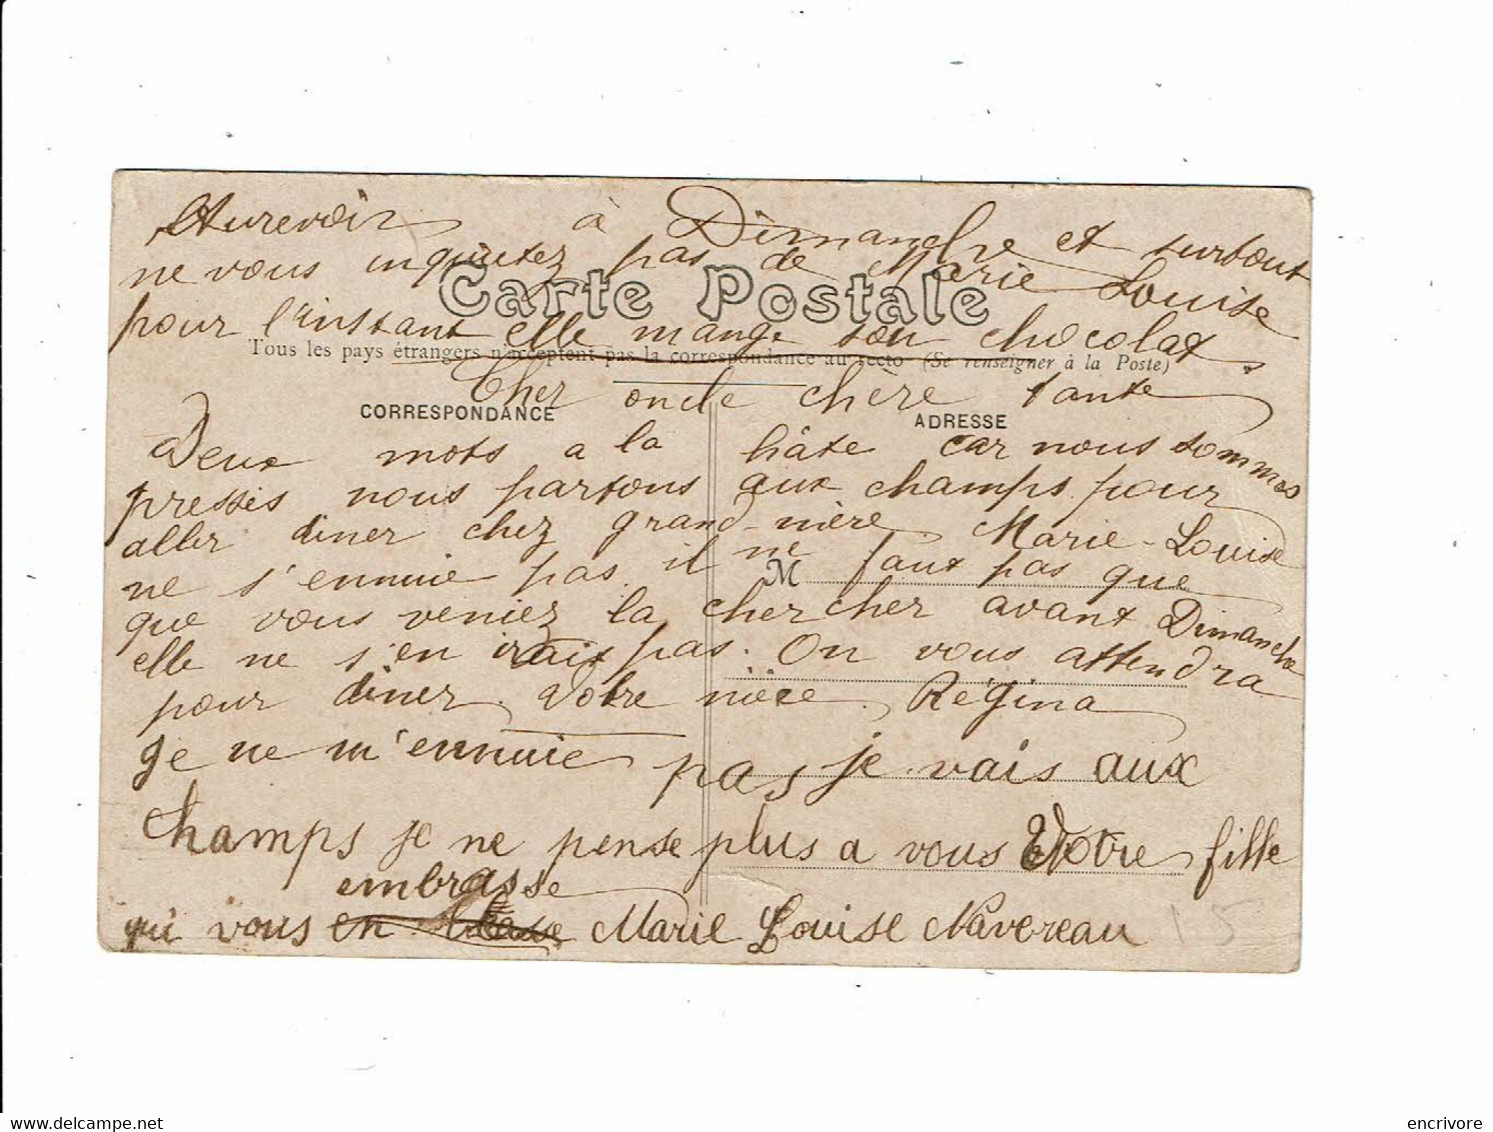 Aurevoir à Dimanche et surtout
ne vous inquiutez pas de Marie Louise
Carte Postale
pour l'instant elle mange son chocolat.
Tous les pays étrangers n'acceptent pas la correspondance au recto (Se renseigner à la Poste)
Cher oncle chère tante
CORRESPONDANCE
ADRESSE
Deux mots a la hâte car nous sommes
pressés nous partons aux champs pour
aller diner chez grand-mère Marie-Louise
ne s'ennuie pas. il ne faut pas que
M
que vous veniez la chercher avant Dimanche
elle ne s'en irait pas. On vous attendra
pour diner. Votre nièce. Régina
Je ne m'ennuie pas je vais aux
champs je ne pense plus a vous Votre fille
embrasse
qui vous en Marie Louise Navereau
15
delcampe.net
encrivore